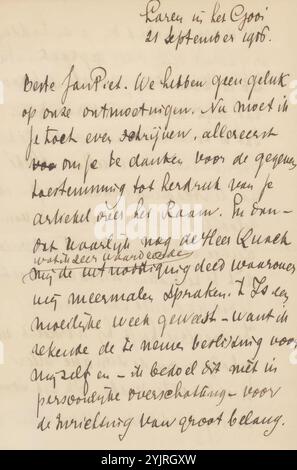 Laren in het Gooi
21 September 1906.
Beste Jan Piet. We hebben geen geluk
op onze ontmoetingen. Nu moet ik
je toch even schrijven, allereerst
om je te danken voor de gegeven
toestemming tot herdruk van je
artikel over het Raam. En dan
dat waarlijk nog de Heer Quack
wat ik zeer waardeerde
mij de uitnoodiging deed waarover
wij meermalen spraken. 't Is een
moeilijke week geweest - want ik
rekende de te nemen beslissing voor
mijzelf en - ik bedoel dit niet in
persoonlijke overschatting - voor
de inrichting van groot belang.
alamy
Image ID: 2YJRGXW
www.alamy.com